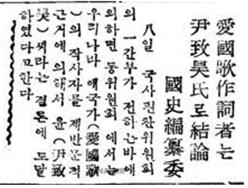 愛國歌作詞者는
尹致昊氏로 結論
國史編纂委
八일 국사편찬위원회
의 一간부가 전하는바에
의하면 동위원회에서는
우리나라 애국가(愛國歌
)의 작사자를 제반문적
근거에 의해서 윤(尹致
昊)씨라는 결론에 도달
하였다고한다